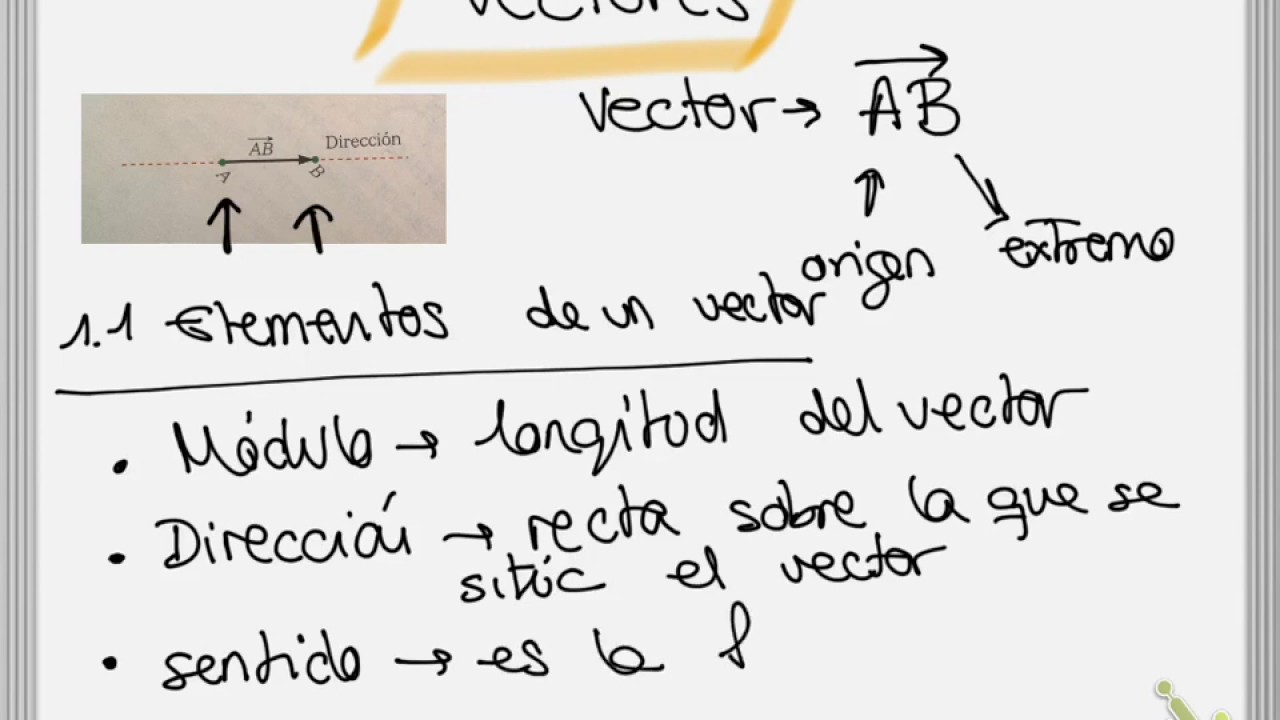 vectores
vector → AB
AB Dirección
A B
origen extremo
1.1 Elementos de un vector
• Módulo → longitud del vector
• Dirección → recta sobre la que se
sitúa el vector
• sentido → es la f